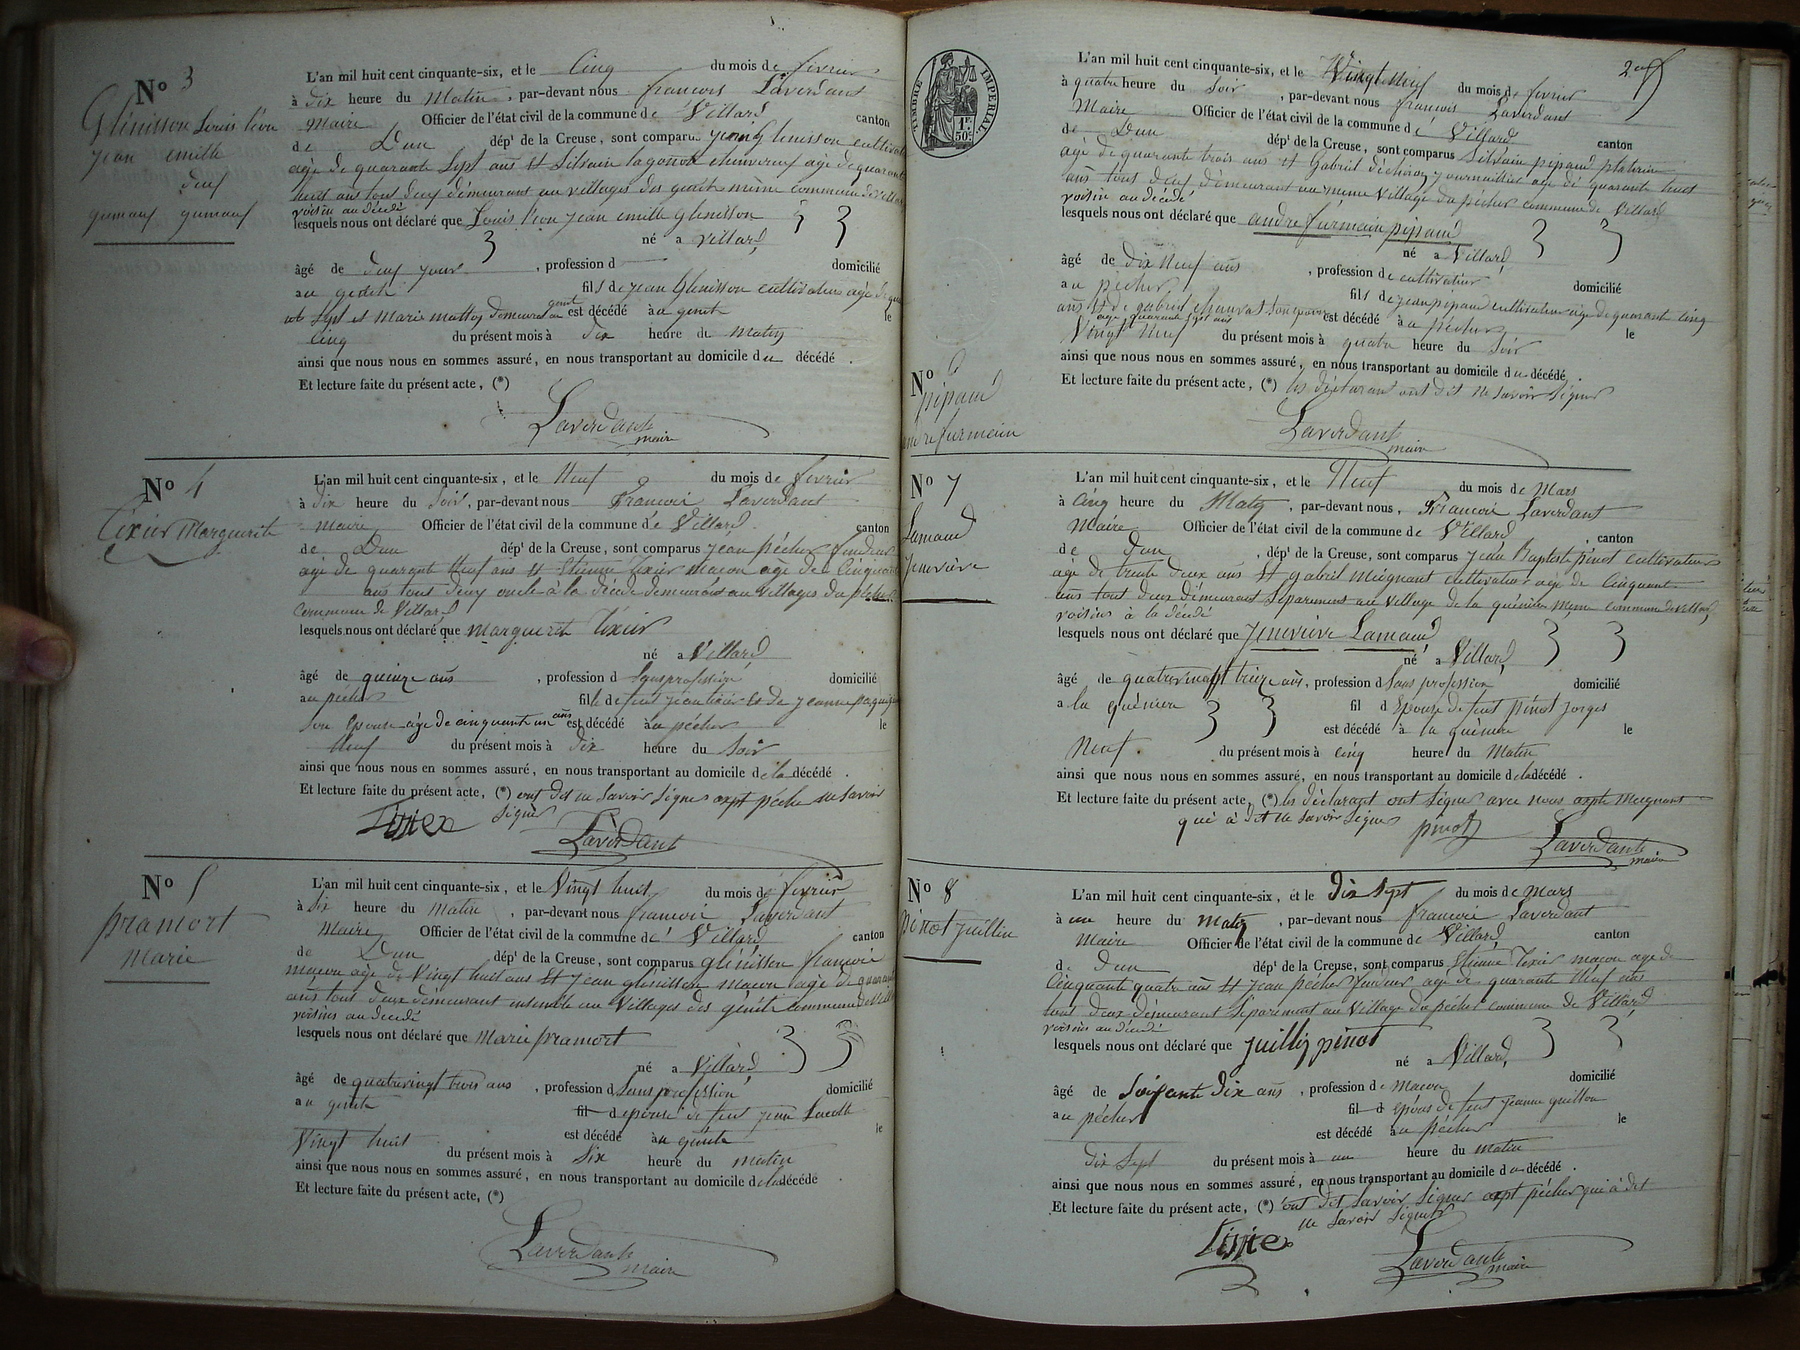 N° 3
Glénisson Louis léon
jean emille
deuf
gumauf gumauf
L'an mil huit cent cinquante-six, et le cinq du mois de fevrier
à dix heure du Matin, par-devant nous francois Laverdant
Maire Officier de l'état civil de la commune dé Villard canton
de Dun dépt de la Creuse, sont comparu jean Glenisson cultivat
agé de quarante Sept ans et Silvain lagoutte age de quarant
huit ans tout deuf démeurant au villages des genete même commune de Villar
voisin au décédé
lesquels nous ont déclaré que Louis léon jean emille glenisson
né a Villard
âgé de deuf jour, profession d domicilié
au genete fils de jean Glenisson cultivateur agé de qua
Sept et Marie demeurant au genete est décédé à au genete le
cinq du présent mois à dix heure du matin
ainsi que nous nous en sommes assuré, en nous transportant au domicile du décédé.
Et lecture faite du présent acte, (*)
Laverdant
maire
N° 4
Tixier Marguerite
L'an mil huit cent cinquante-six, et le Neuf du mois de fevrier
à dix heure du Soir, par-devant nous Francois Laverdant
Maire Officier de l'état civil de la commune dé Villard canton
de Dun dépt de la Creuse, sont comparus jean pécher
agé de quarant Neuf ans et Etienne tixier macon age de Cinquant
ans tout deuf oncle à la décédé demeurant au Villages du pécher
commune de Villard
lesquels nous ont déclaré que marguerit tixier
né a Villard
âgé de quinze ans, profession d Sans profession domicilié
au pécher fille de feut jean tixier et de jeanne
Son Epouse agé de cinquante un ans est décédé à au pécher le
Neuf du présent mois à dix heure du Soir
ainsi que nous nous en sommes assuré, en nous transportant au domicile de la décédé.
Et lecture faite du présent acte, (*) ont dit ne Savoir Signer expt pécher ne savoir
signer
Tixier Laverdant
N° 5
pramort
marie
L'an mil huit cent cinquante-six, et le Vingt huit du mois de fevrier
à Six heure du matin, par-devant nous francois Laverdant
Maire Officier de l'état civil de la commune dé Villard canton
de Dun dépt de la Creuse, sont comparus glénisson francois
macon age de Vingt huit ans et jean glenisson macon agé de quarant
ans tout deux démeurant ensemble au Villages des génete commune de Vill
voisins au décédé
lesquels nous ont déclaré que Marie pramort
né a Villard
âgé de quatrevingt trois ans, profession d Sans profession domicilié
au genete fil d epouse de feut jean
est décédé à au genete le
Vingt huit du présent mois à Six heure du matin
ainsi que nous nous en sommes assuré, en nous transportant au domicile de la décédé
Et lecture faite du présent acte, (*)
Laverdant
maire
TIMBRE IMPERIAL
1F.
50C.
N° 6
pipaud
andre furmain
L'an mil huit cent cinquante-six, et le Vingt Neuf du mois de fevrier
à quatre heure du Soir, par-devant nous francois Laverdant
Maire Officier de l'état civil de la commune dé Villard
de Dun dépt de la Creuse, sont comparus Silvain pipaud platrier canton
agé de quarante trois ans et Gabriel journallier age dé quarante huit
ans tous deuf démeurant au meme Village du pécher commune de Villard
voisin au décédé
lesquels nous ont déclaré que andre furmain pipaud
né a Villard
âgé de dix Neuf ans, profession de cultivateur domicilié
au pécher fils de jean pipaud cultivateur age de quarant cinq
ans et de gabriel Son epouse est décédé à au pécher le
age quarante Sept ans
Vingt Neuf du présent mois à quatre heure du Soir
ainsi que nous nous en sommes assuré, en nous transportant au domicile du décédé.
Et lecture faite du présent acte, (*) les déclarant ont dit ne Savoir Signer
Laverdant
maire
N° 7
Lamaud
Jenevieve
L'an mil huit cent cinquante-six, et le Neuf du mois de Mars
à cinq heure du Matin, par-devant nous, Francois Laverdant
Maire Officier de l'état civil de la commune de Villard, canton
de Dun, dépt de la Creuse, sont comparus jean Baptiste pinot cultivateur
age de trente deux ans et gabriel Meignant cultivateur agé de Cinquant
ans tout deux démeurant Séparement au Village de la même commune de Villard
voisins à la décédé
lesquels nous ont déclaré que jenevieve Lamaud
né a Villard
âgé de quatrevingt treize ans, profession d Sans profession domicilié
a la fil d Epouse de feut Pinot jorges
est décédé à la le
Neuf. du présent mois à cinq heure du Matin
ainsi que nous nous en sommes assuré, en nous transportant au domicile de la décédé.
Et lecture faite du présent acte, (*) les déclarant ont Signer avec nous expte Meignant
qui à dit ne Savoir Signer pinot Laverdant
maire
N° 8
Pinot juillin
L'an mil huit cent cinquante-six, et le Dix Sept du mois de Mars
à un heure du matin, par-devant nous francois Laverdant
Maire Officier de l'état civil de la commune de Villard canton
de Dun dépt de la Creuse, sont comparus Etienne Tixier macon age de
Cinquant quatre ans et jean pécher age de quarante Neuf ans
tout deux démeurant Séparement au Village du pécher commune de Villard
voisins au décédé
lesquels nous ont déclaré que juillin pinot
né a Villard
âgé de Soixante dix ans, profession de macon domicilié
au pécher fil d epous de feut jeanne guillon
est décédé à au pécher le
Dix Sept du présent mois à un heure du matin
ainsi que nous nous en sommes assuré, en nous transportant au domicile du décédé.
Et lecture faite du présent acte, (*) ont dit Savoir Signer expt pécher qui à dit
ne Savoir Signer
Tixier Laverdant
maire